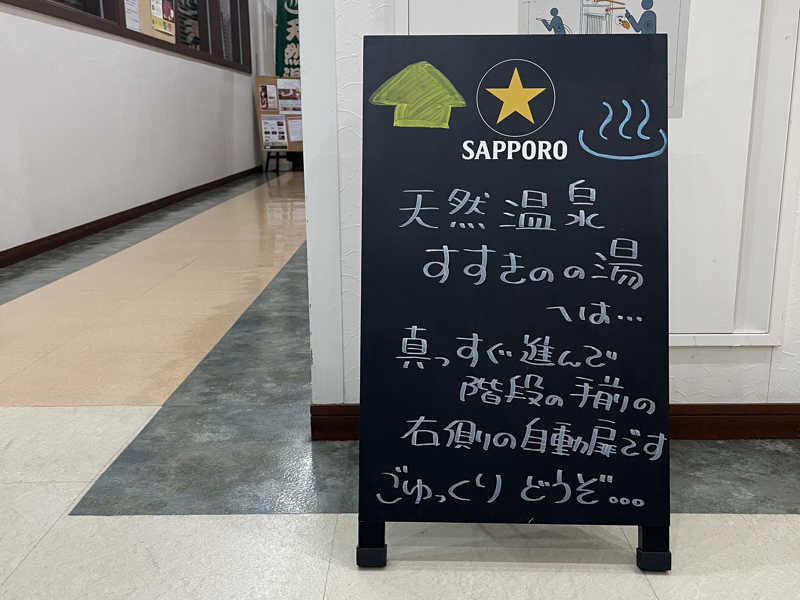 SAPPORO
天然温泉
すすきのの湯
へは…
真っすぐ進んで
階段の手前の
右側の自動扉です
ごゆっくりどうぞ…
天然温